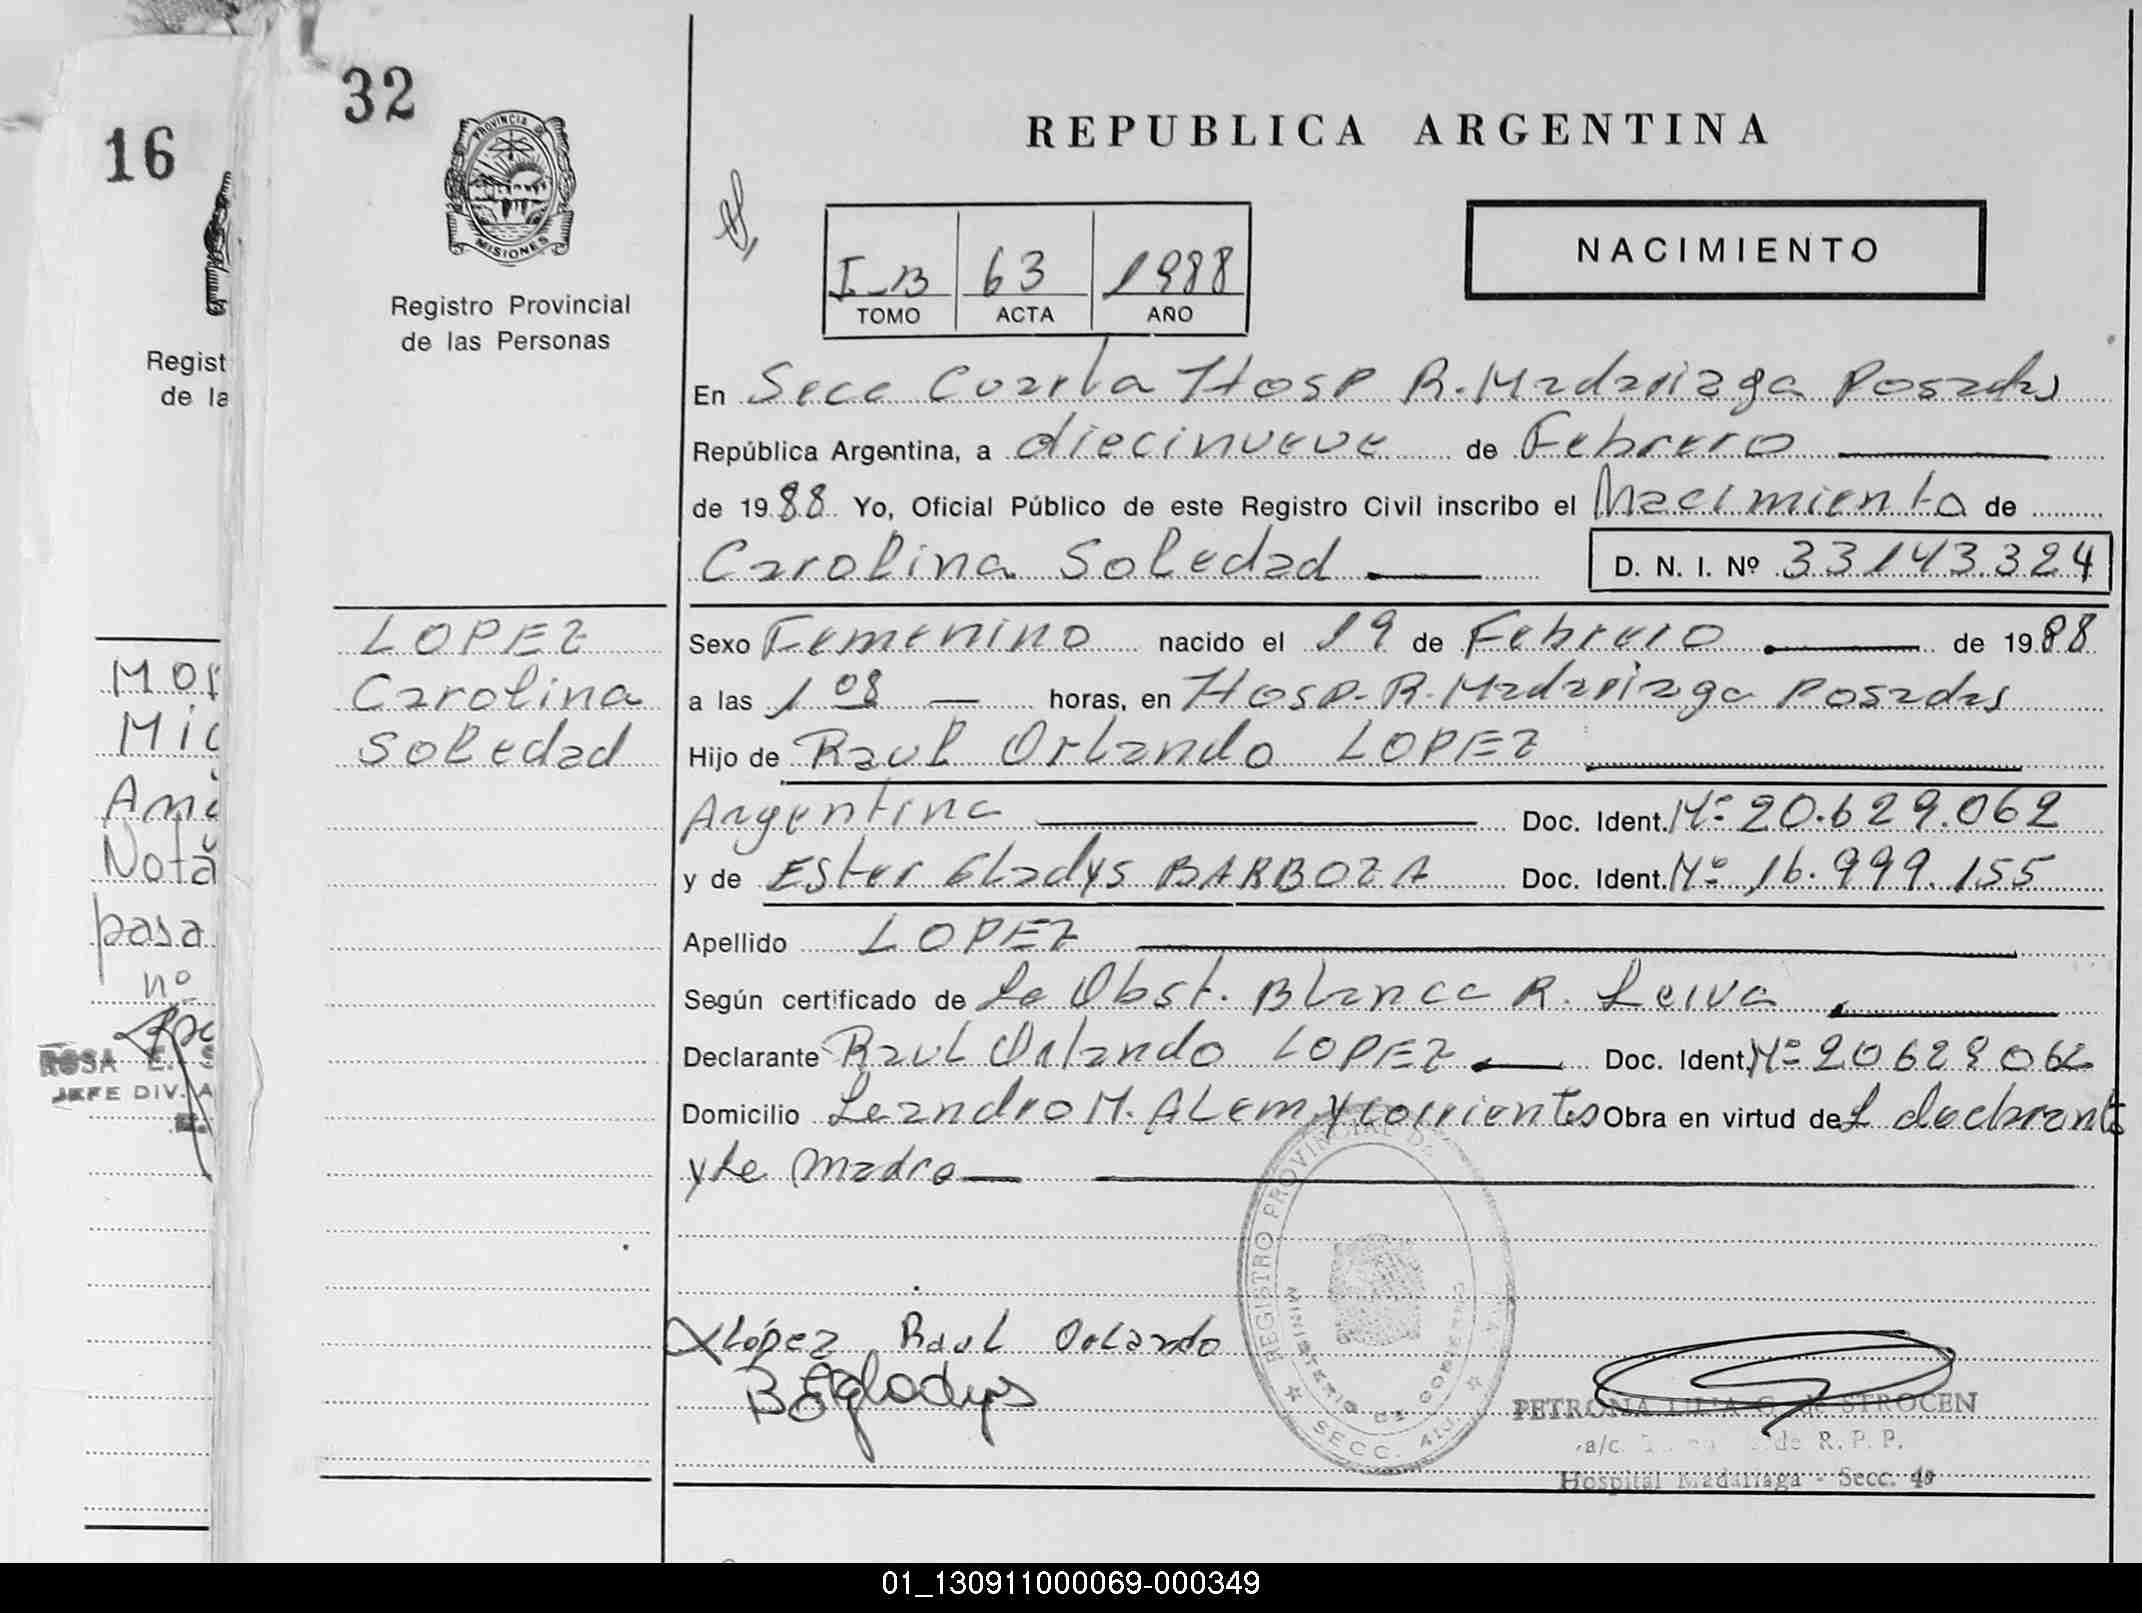 16
Regist
de la
MOR
Mic
Ana
Nota
pasa
nº
ROSA E. S
JEFE DIV. A
32
PROVINCIA DE
MISIONES
Registro Provincial
de las Personas
LOPEZ
Carolina
Soledad
REPUBLICA ARGENTINA
NACIMIENTO
I-B 63 1988
TOMO ACTA AÑO
En Secc Cuarta Hosp R. Madariaga Posadas
República Argentina, a diecinueve de Febrero
de 1988 Yo, Oficial Público de este Registro Civil inscribo el Nacimiento de
Carolina Soledad D. N. I. Nº 33143.324
Sexo Femenino nacido el 19 de Febrero de 1988
a las 1 08 horas, en Hosp. R. Madariaga Posadas
Hijo de Raul Orlando LOPEZ
Argentina Doc. Ident. Nº 20.629.062
y de Ester Gladys BARBOZA Doc. Ident. Nº 16.999.155
Apellido LOPEZ
Según certificado de La Obst. Blanca R. Leiva
Declarante Raul Orlando LOPEZ Doc. Ident. Nº 20629062
Domicilio Leandro N. Alem y corrientes Obra en virtud del declarante
y la Madre
X López Raul Orlando
REGISTRO PROVINCIAL DE
MINISTERIO DE GOBIERNO
SECC. 4TA
PETRONA LILIA G. de STROCEN
a/c de R. P. P.
Hospital Madariaga - Secc. 4ª
01_130911000069-000349